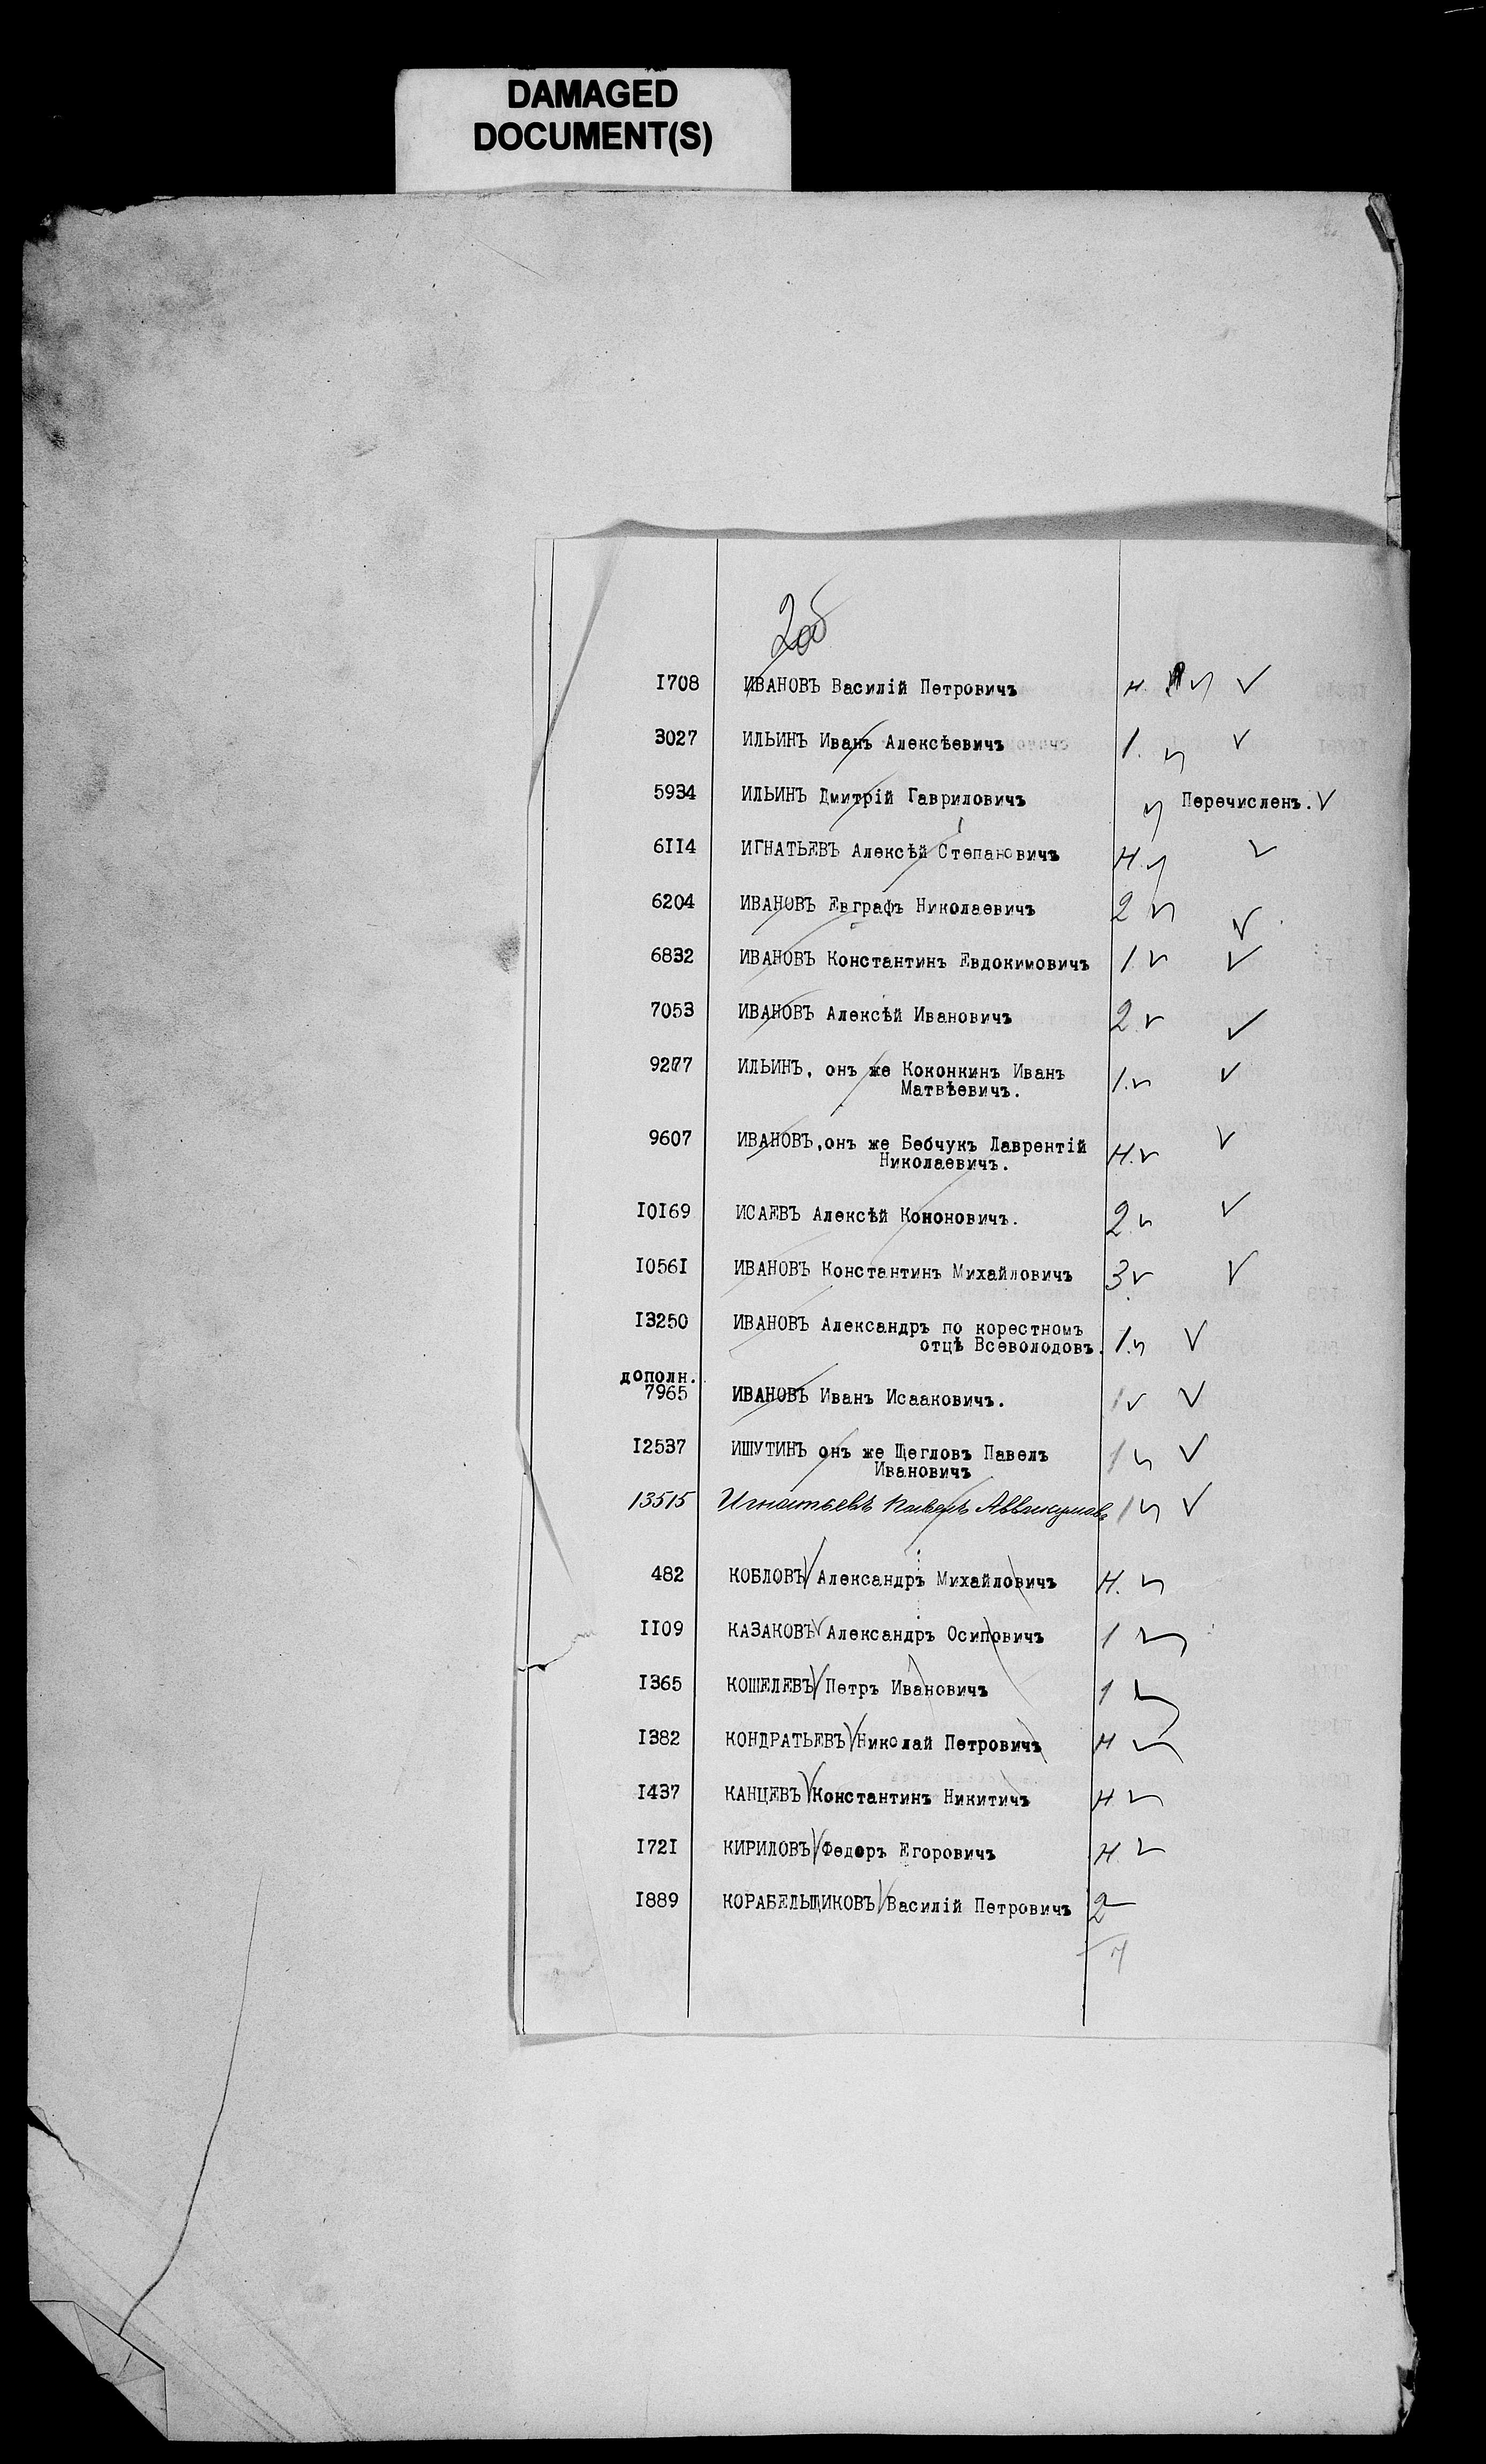 DAMAGED
DOCUMENT(S)
I708 ИВАНОВЪ Василій Петровичъ Н. ✓
3027 ИЛЬИНЪ Иванъ Алексѣевичъ 1. ✓
5934 ИЛЬИНЪ Дмитрій Гавриловичъ Перечисленъ. ✓
6II4 ИГНАТЬЕВЪ Алексѣй Степановичъ Н. ✓
6204 ИВАНОВЪ Евграфъ Николаевичъ 2 ✓
6832 ИВАНОВЪ Константинъ Евдокимовичъ 1 ✓
7053 ИВАНОВЪ Алексѣй Ивановичъ 2 ✓
9277 ИЛЬИНЪ, онъ же Коконкинъ Иванъ 1. ✓
Матвѣевичъ.
9607 ИВАНОВЪ,онъ же Бебчукъ Лаврентій Н. ✓
Николаевичъ.
I0I69 ИСАЕВЪ Алексѣй Кононовичъ. 2 ✓
I056I ИВАНОВЪ Константинъ Михайловичъ 3 ✓
I3250 ИВАНОВЪ Александръ по корестномъ 1. ✓
отцѣ Всеволодовъ.
дополн.
7965 ИВАНОВЪ Иванъ Исааковичъ. 1 ✓
I2537 ИШУТИНЪ онъ же Щегловъ Павелъ 1 ✓
Ивановичъ
13515 Игнатьевъ Павелъ Аввакумовъ 1 ✓
482 КОБЛОВЪ Александръ Михайловичъ Н.
II09 КАЗАКОВЪ Александръ Осиповичъ 1
I365 КОШЕЛЕВЪ Петръ Ивановичъ 1
I382 КОНДРАТЬЕВЪ Николай Петровичъ Н
I437 КАНЦЕВЪ Константинъ Никитичъ Н
I72I КИРИЛОВЪ Федоръ Егоровичъ Н
I889 КОРАБЕЛЬЩИКОВЪ Василій Петровичъ 2